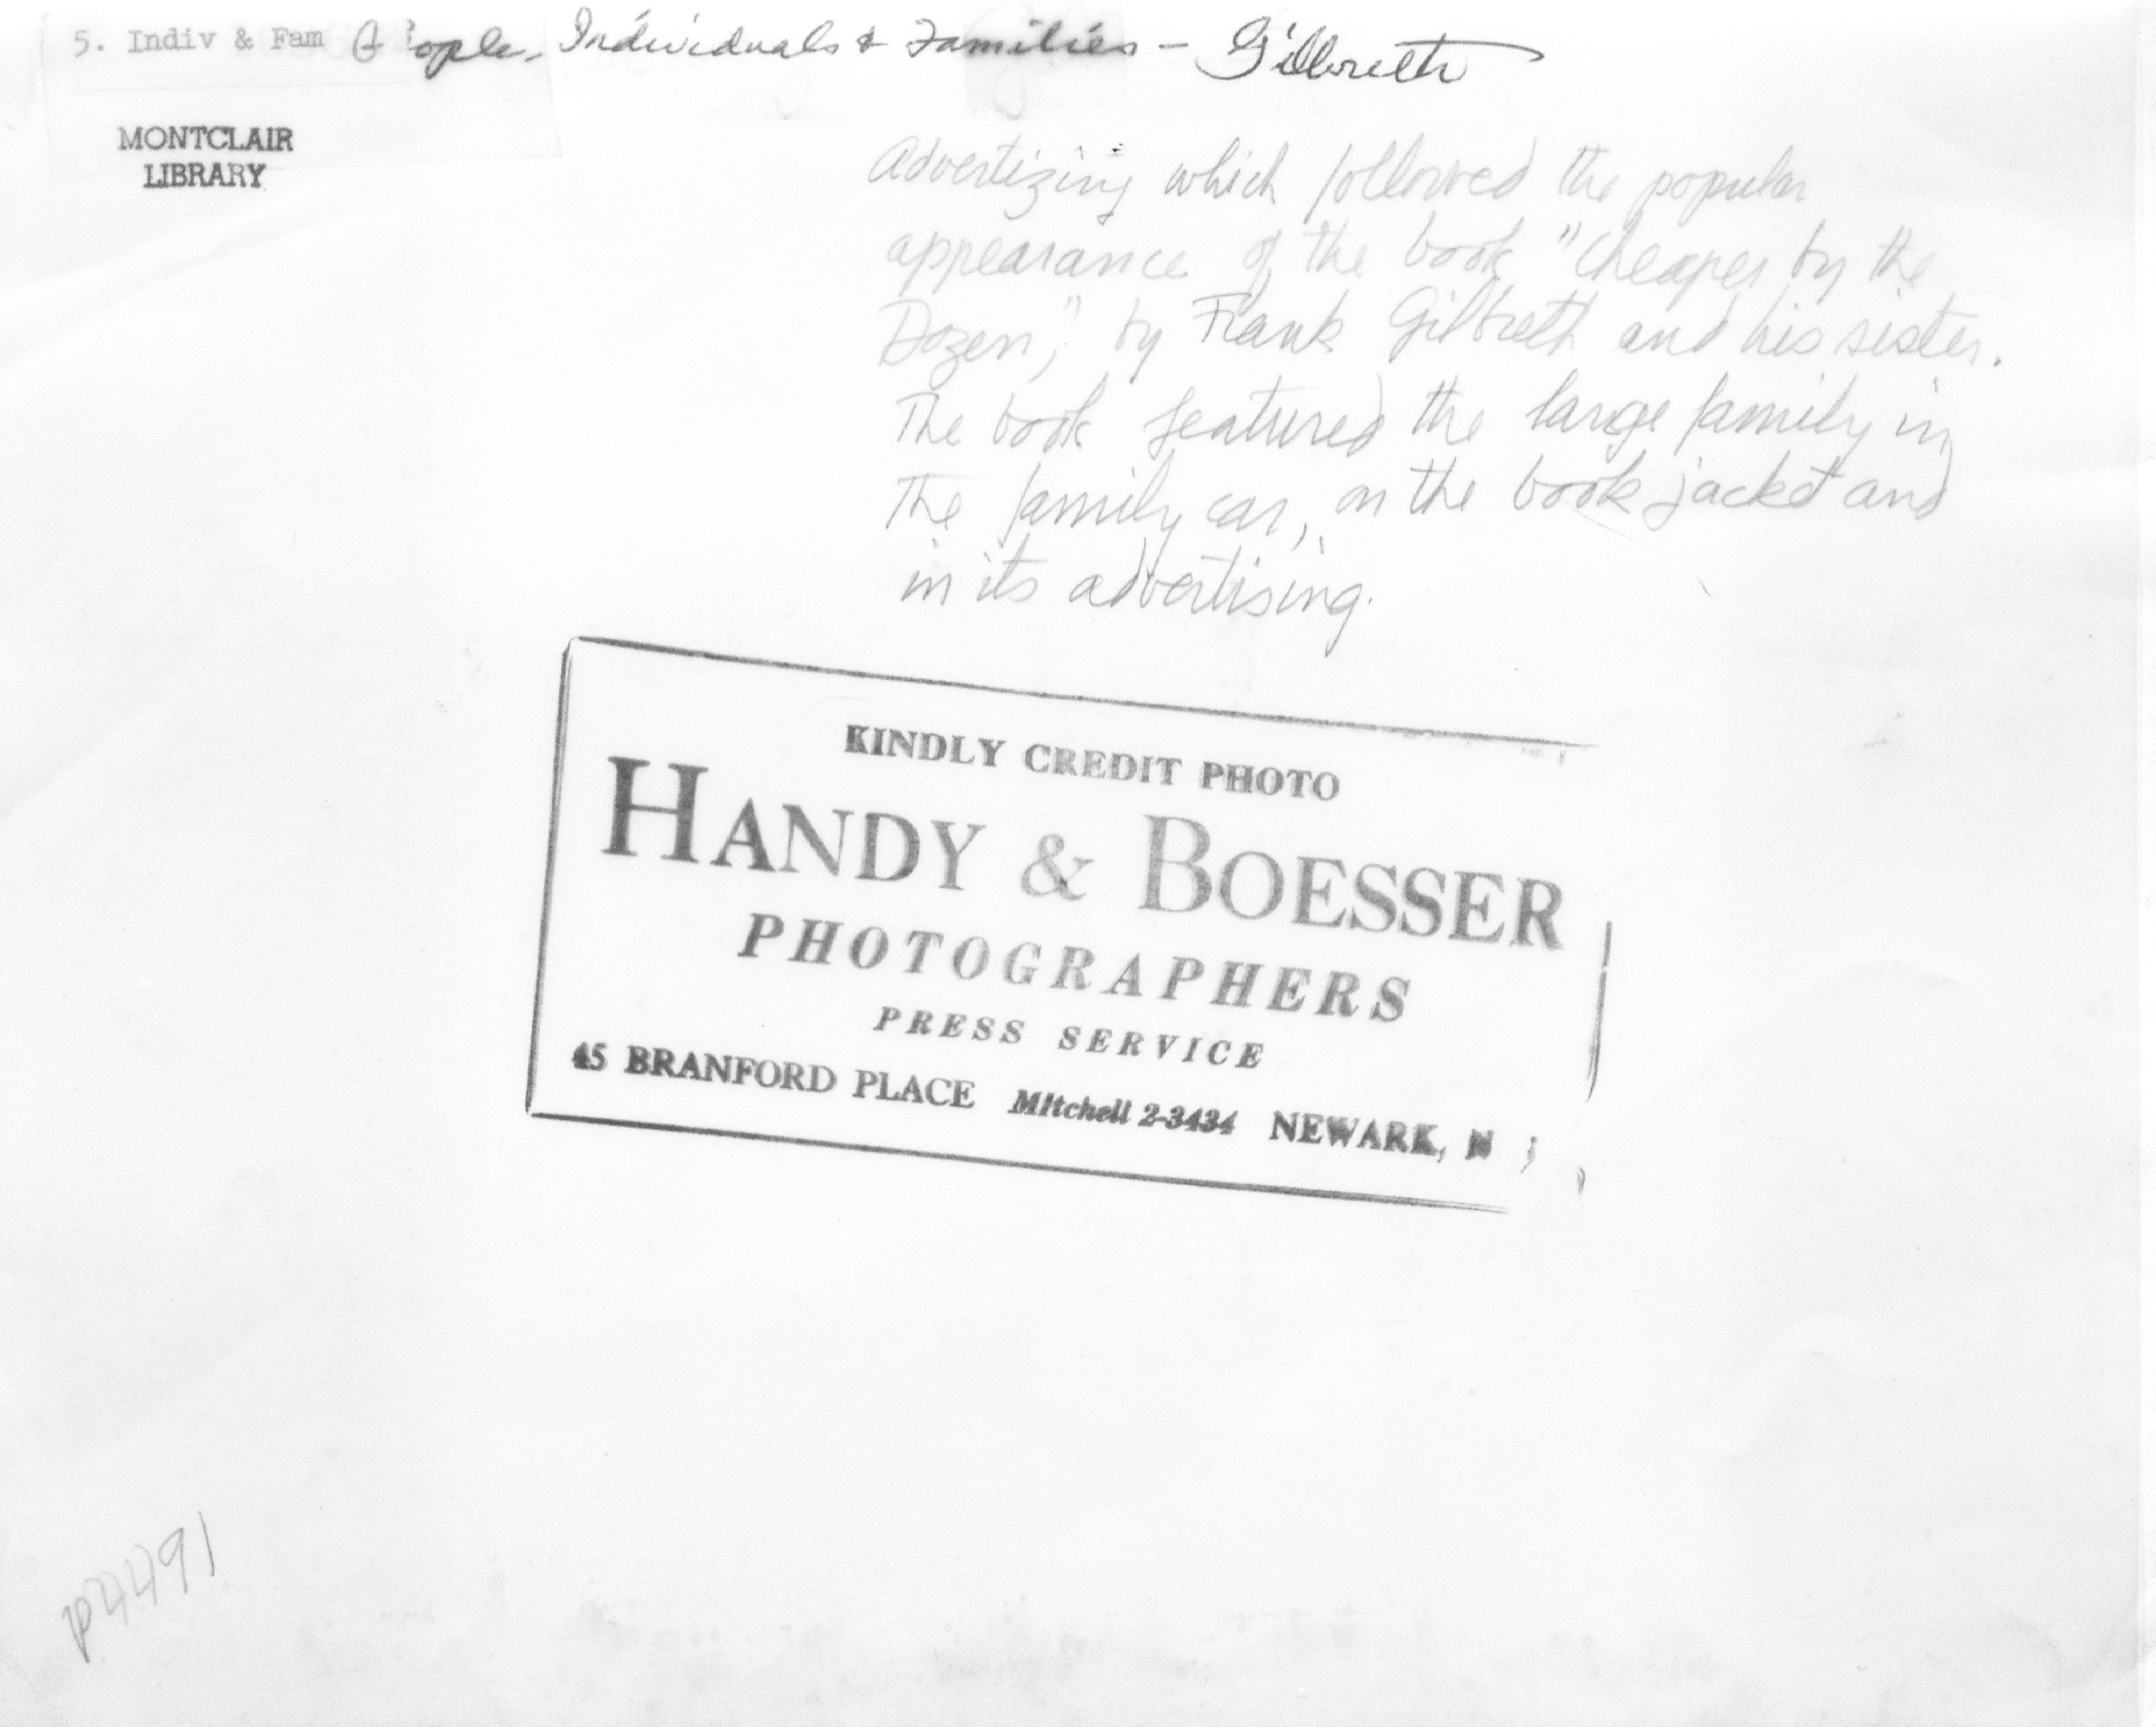 5. Indiv & Fam People, Individuals & Families - Gilbreth
MONTCLAIR
LIBRARY
Advertizing which followed the popular
appearance of the book "Cheaper by the
Dozen," by Frank Gilbreth and his sister.
The book featured the large family in
The family car, on the book jacket and
in its advertising.
KINDLY CREDIT PHOTO
HANDY & BOESSER
PHOTOGRAPHERS
PRESS SERVICE
45 BRANFORD PLACE MItchell 2-3434 NEWARK, N J
p4491